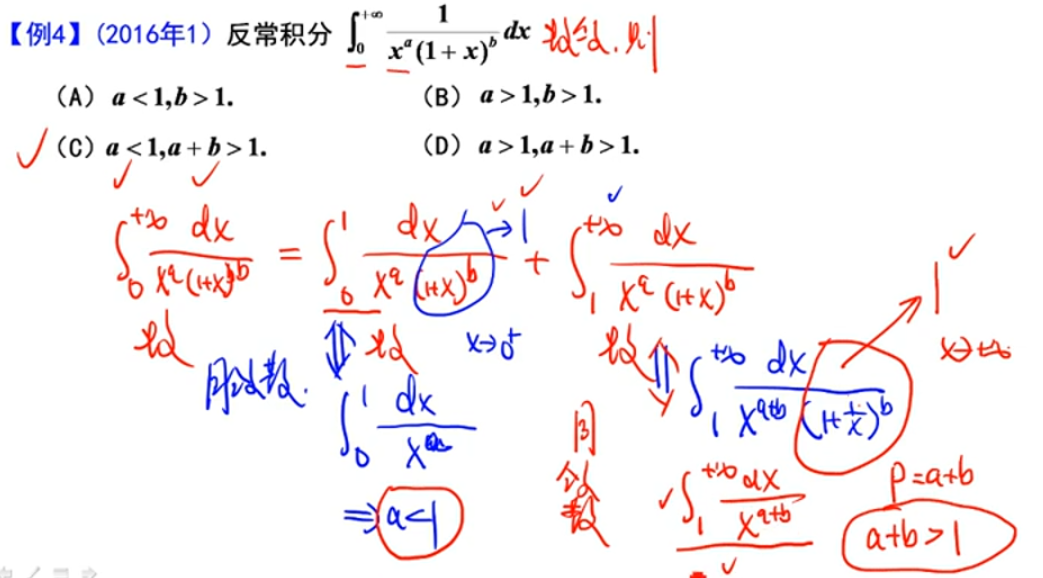 【例4】(2016年1) 反常积分 ∫₀^{+∞} 1/(xᵃ(1+x)ᵇ) dx 收敛, 则
(A) a<1,b>1. (B) a>1,b>1.
(C) a<1,a+b>1. (D) a>1,a+b>1.
∫₀^{+∞} dx/(xᵃ(1+x)ᵇ) = ∫₀¹ dx/(xᵃ(1+x)ᵇ) →1 + ∫₁^{+∞} dx/(xᵃ(1+x)ᵇ)
收敛 收敛 x→0⁺ 收敛
同敛散. ∫₀¹ dx/xᵃ ∫₁^{+∞} dx/(x^{a+b}(1+1/x)ᵇ) 1 x→+∞
⇒ a<1 同敛散 ∫₁^{+∞} dx/x^{a+b} P=a+b
a+b>1